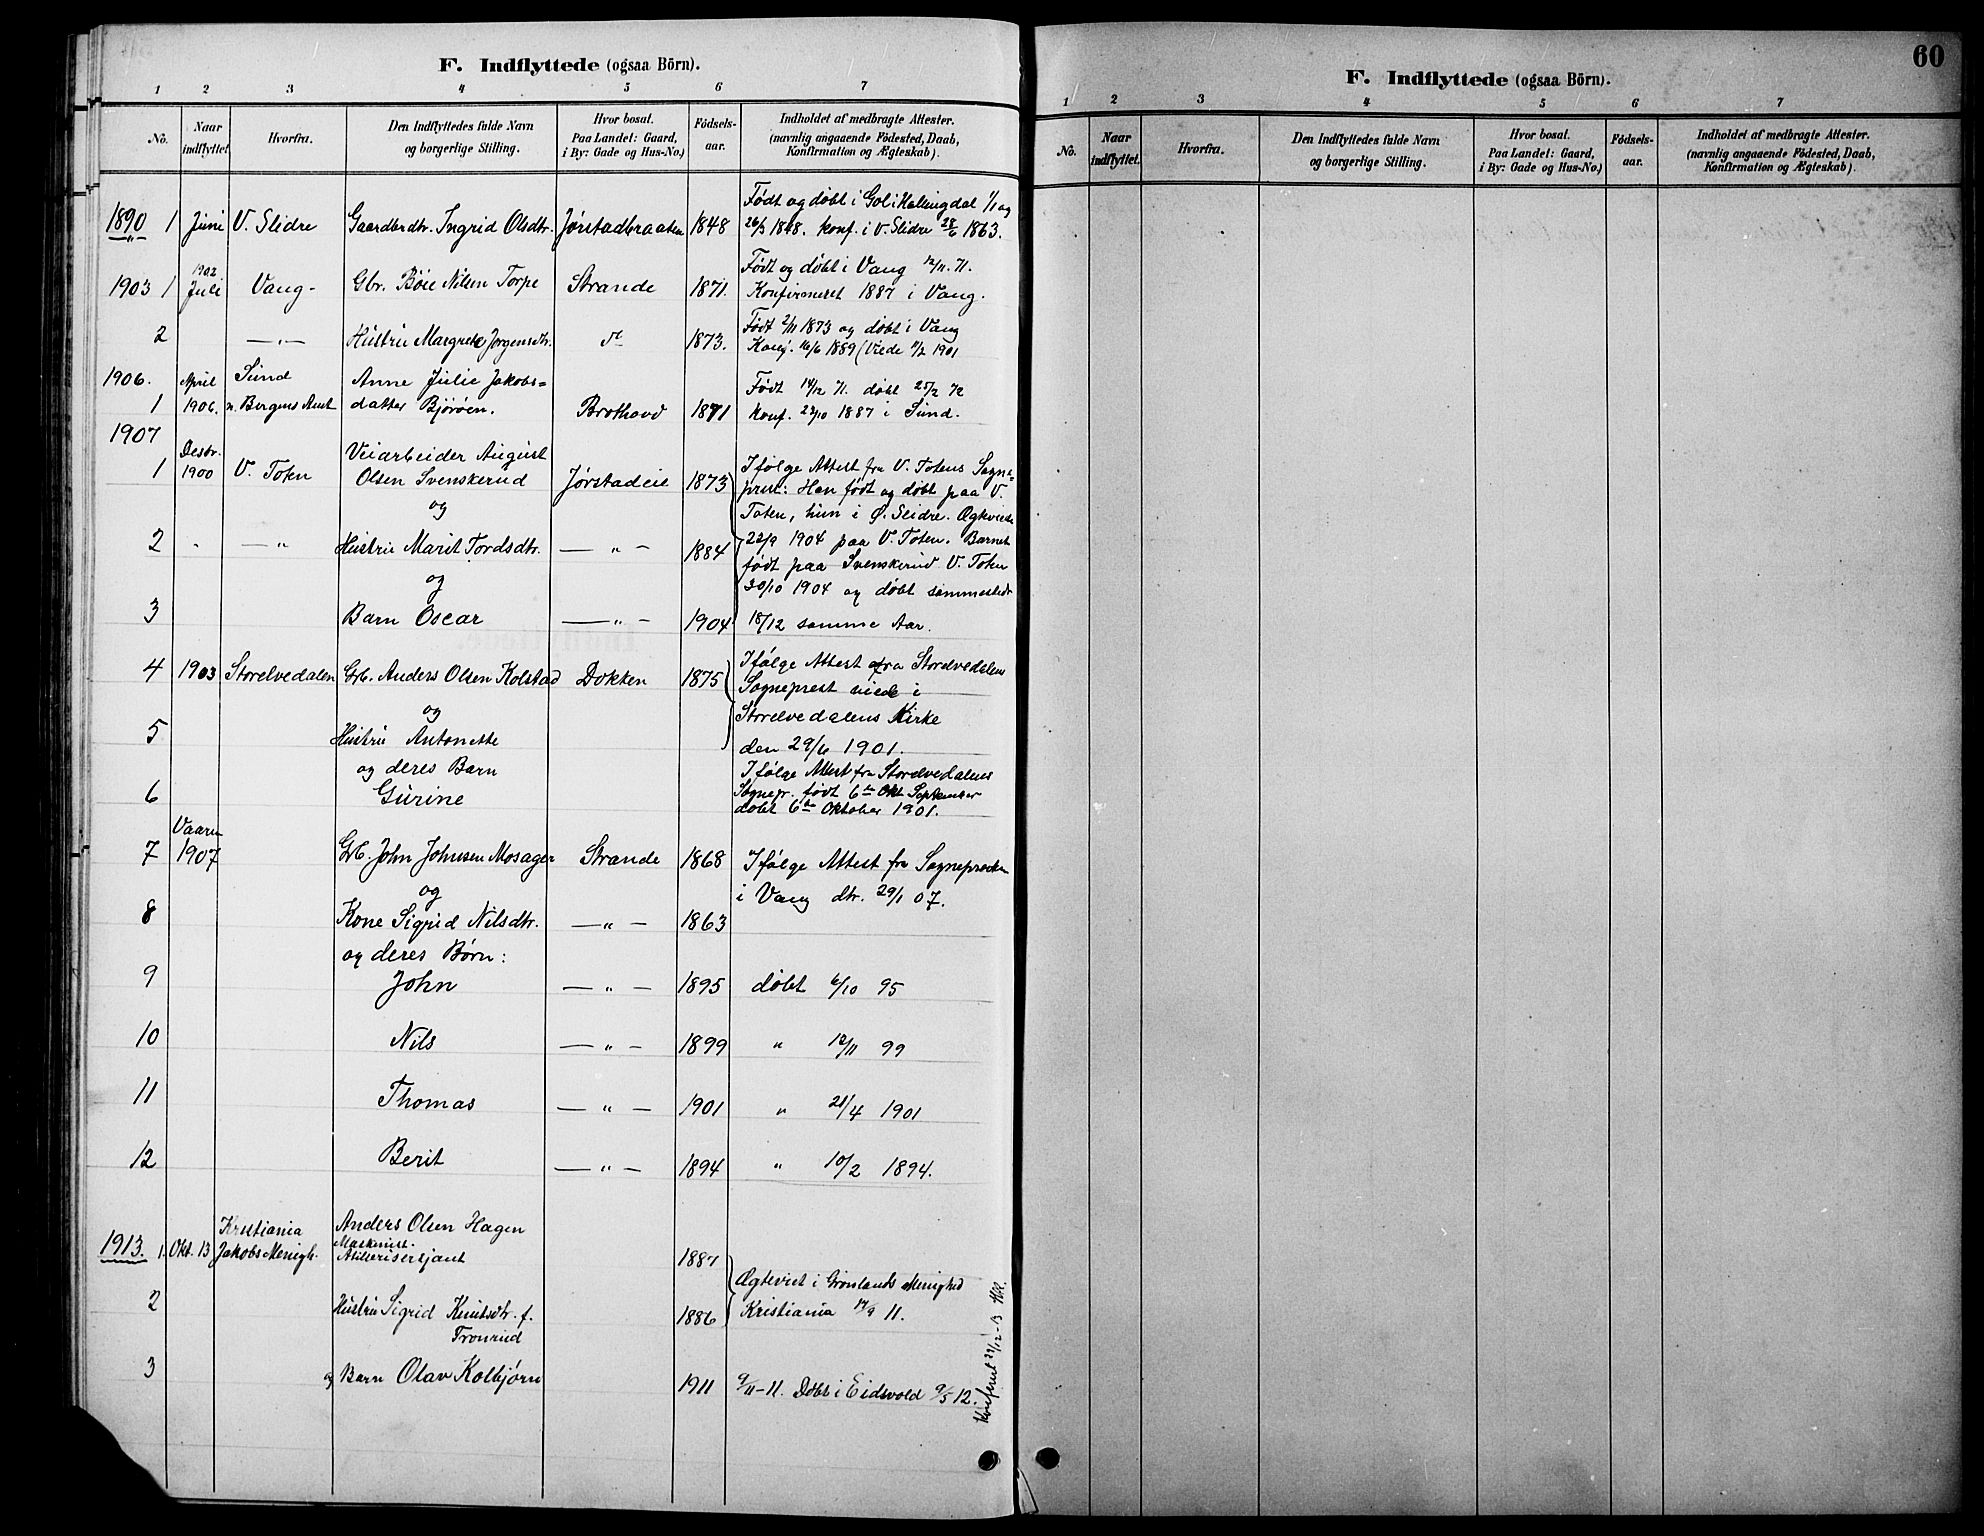 F. Indflyttede (ogsaa Börn).
1 2 3 4 5 6 7
No. Naar indflyttet. Hvorfra. Den Indflyttedes fulde Navn og borgerlige Stilling. Hvor bosat. Paa Landet: Gaard, i By: Gade og Hus-No.) Födsels-aar. Indholdet af medbragte Attester. (navnlig angaaende Födested, Daab, Konfirmation og Ægteskab).
Født og døbt i Gol i Hallingdal 1/1 og
1890 1 Juni V. Slidre Gaardbrdtr. Ingrid Olsdtr. Jørstadbraaten 1848 26/3 1848. konf. i V. Slidre 28/6 1863.
1902 Født og døbt i Vang 12/11. 71.
1903 1 Juli Vang- Gbr. Böie Nilsen Torpe Strande 1871. Konfirmeret 1887 i Vang.
Født 2/11 1873 og døbt i Vang
2 — „ — Hustru Margrete Jørgensdtr. dt 1873. Konf. 16/6 1889 (Viede 11/2 1901
1906. April Sund Anne Julie Jakobs= Født 14/12 71. døbt 25/2 72
1 1906. n. Bergens Amt datter Bjørøen. Brothovd 1871 Konf. 23/10 1887 i Sund.
1907
Desbr. Veiarbeider August Ifølge Attest fra V. Totens Sogne=
1 1900 V. Toten Olsen Svenskerud Jørstadeie 1873 prest: Han født og døbt paa V.
og Toten, hun i Ø. Slidre. Ægteviede
2 „ — „ Hustru Marit Tordsdtr. — „ — 1884 22/9 1904 paa V. Toten. Barnet
og født paa Svenskerud V. Toten
30/10 1904 og døbt sammesteds
3 Barn Oscar — „ — 1904 18/12 samme Aar.
4 1903 Storelvedalen Grb. Anders Olsen Kolstad Dokken 1875 Ifølge Attest fra Storelvedalens
og Sogneprest viede i
Storelvedalens Kirke
5 Hustru Antonette den 29/6 1901.
og deres Barn Ifølge Attest fra Storelvedalens
6 Gurine Sognepr. født 6te Okt September
døbt 6te Oktober 1901.
Vaaren
7 1907 Grb. John Johnsen Mosager Strande 1868 Ifølge Attest fra Sognepresten
og i Vang dtr. 29/1 07.
8 Kone Sigrid Nilsdtr. — „ — 1863
og deres Børn:
9 John — „ — 1895 døbt 6/10 95
10 Nils — „ — 1899 „ 12/11 99
11 Thomas — „ — 1901 „ 21/4 1901
12 Berit — „ — 1894 „ 10/2 1894.
Kristiania Anders Olsen Hagen
1913. 1. Okt. 13 Jakobs Menigh. Maskinist. Artillerisersjant 1887
Ægteviet i Grønlands Menighed
2 Hustru Sigrid Knutsdtr. f. 1886 Kristiania 17/9 11.
Tronrud
3 og Barn Olav Kolbjørn 1911 9/11-11. Døbt i Eidsvold 9/5 12.
Konferert 29/12-13
60
F. Indflyttede (ogsaa Börn).
1 2 3 4 5 6 7
No. Naar indflyttet. Hvorfra. Den Indflyttedes fulde Navn og borgerlige Stilling. Hvor bosat. Paa Landet: Gaard, i By: Gade og Hus-No.) Födsels-aar. Indholdet af medbragte Attester. (navnlig angaaende Födested, Daab, Konfirmation og Ægteskab).